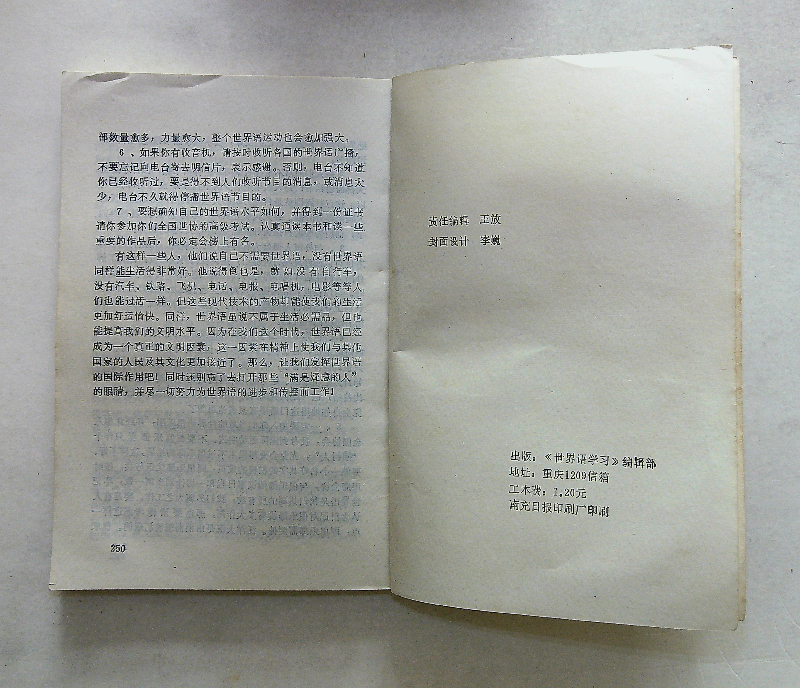 部数量愈多，力量愈大，整个世界语运动也会愈加强大。
6、如果你有收音机，请按时收听各国的世界语广播，
不要忘记向电台寄去明信片，表示感谢。否则，电台不知道
你已经收听过，要是得不到人们收听节目的消息，或消息太
少，电台不久就得停播世界语节目的。
7、要想确知自己的世界语水平如何，并得到一份证书
请你参加你们全国世协的高级考试。认真通读本书和读一些
重要的作品后，你必定会榜上有名。
有这样一些人，他们说自己不需要世界语，没有世界语
同样能生活得非常好。他说得倒也是，就如没有自行车，
没有汽车、铁路、飞机、电话、电报、电唱机，电影等等人
们也能过活一样。但这些现代技术的产物却能使我们的生活
更加舒适愉快。同样，世界语虽说不属于生活必需品，但也
能提高我们的文明水平。因为在我们这个时代，世界语已经
成为一个真正的文明因素，这一因素在精神上使我们与其他
国家的人民及其文化更加接近了。那么，让我们发挥世界语
的国际作用吧！同时还别忘了去打开那些“满是疑意的人”
的眼睛，并尽一切努力为世界语的进步和传播而工作！
250
责任编辑 王放
封面设计 李巍
出版：《世界语学习》编辑部
地址：重庆1209信箱
工本费：1.20元
南充日报印刷厂印刷